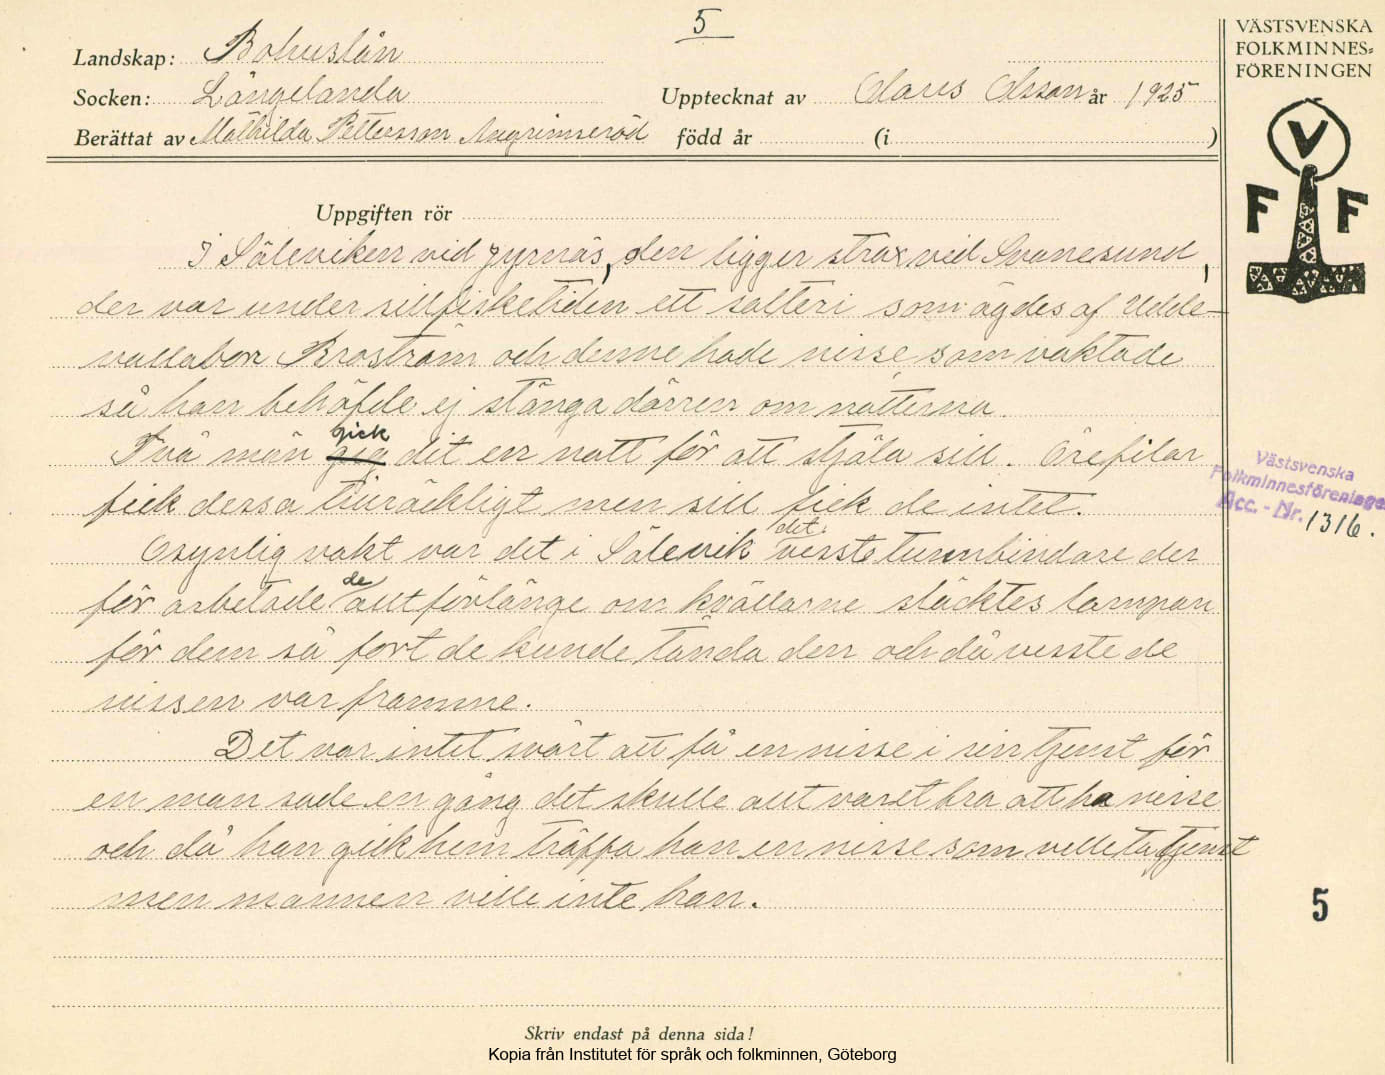 5
VÄSTSVENSKA
FOLKMINNES=
FÖRENINGEN
Landskap: Bohuslän
Socken: Långelanda
Upptecknat av Claus Olsson år 1925
Berättat av Mathilda Pettersson
född år (i )
V
F F
Uppgiften rör
I Säleviken vid Jyrnäs, den ligger strax vid Svanesund,
der var under sillfisketiden ett salteri som ägdes af Udde-
vallabon Broström och denne hade nisse som vaktade
så han behöfde ej stänga dörren om nätterna.
Två män gick dit en natt för att stjäla sill. Örefilar
fick dessa tillräckligt men sill fick de intet.
Osynlig vakt var det i Sälevik det visste tunnbindare der
för arbetade de alltförlänge om kvällarne släcktes lampan
för dem så fort de kunde tända den och då visste de
nissen var framme.
Det var intet svårt att få en nisse i sin tjenst för
en man sade en gång det skulle allt varet bra att ha nisse
och då han gick hem träffa han en nisse som ville ta tjenst
men mannen ville inte han.
Västsvenska
Folkminnesföreningen
Acc. - Nr. 1316.
5
Skriv endast på denna sida!
Kopia från Institutet för språk och folkminnen, Göteborg